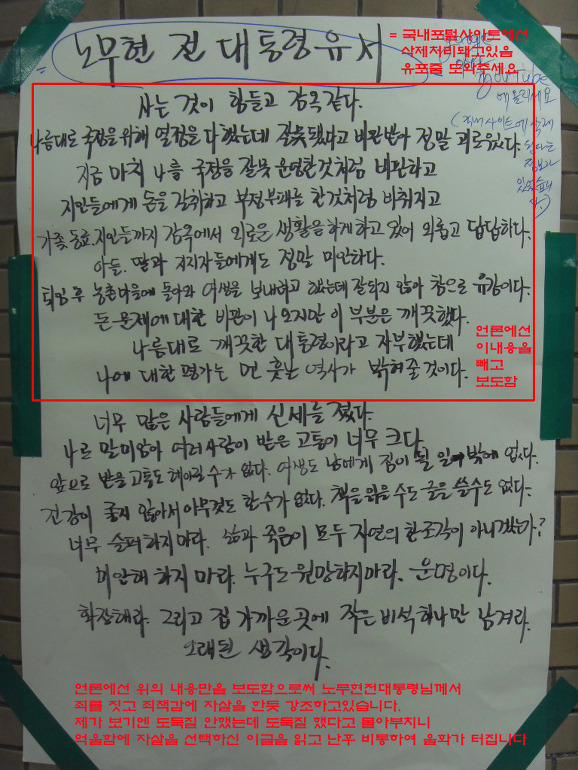 노무현 전 대통령 유서
= 국내포털사이트에선
삭제처리돼고있음
유포좀 도와주세요
youtube
에 올리세요
사는 것이 힘들고 감옥같다.
나름대로 국정을 위해 열정을 다했는데 잘못됐다고 비판받아 정말 괴로웠다.
지금 마치 나를 국정을 잘못 운영한것처럼 비판하고
지인들에게 돈을 갈취하고 부정부패를 한것처럼 비춰지고
가족, 동료, 지인들까지 감옥에서 외로운 생활을 하게 하고 있어 외롭고 답답하다.
아들. 딸과 지지자들에게도 정말 미안하다.
퇴임 후 농촌마을에 돌아와 여생을 보내려고 했는데 잘되지 않아 참으로 유감이다.
돈 문제에 대한 비판이 나오지만 이 부분은 깨끗했다.
나름대로 깨끗한 대통령이라고 자부했는데
나에 대한 평가는 먼 훗날 역사가 밝혀줄 것이다.
언론에선
이내용을
빼고
보도함
너무 많은 사람들에게 신세를 졌다.
나로 말미암아 여러 사람이 받은 고통이 너무 크다.
앞으로 받을 고통도 헤아릴 수가 없다. 여생도 남에게 짐이 될 일 밖에 없다.
건강이 좋지 않아서 아무것도 할 수가 없다. 책을 읽을 수도 글을 쓸 수도 없다.
너무 슬퍼하지 마라. 삶과 죽음이 모두 자연의 한 조각이 아니겠는가?
미안해 하지 마라. 누구도 원망하지마라. 운명이다.
화장해라. 그리고 집 가까운 곳에 작은 비석 하나만 남겨라.
오래된 생각이다.
언론에선 위의 내용만을 보도함으로써 노무현전대통령님께서
죄를 짓고 죄책감에 자살을 한듯 강조하고있습니다.
제가 보기엔 도둑질 안했는데 도둑질 했다고 몰아부치니
억울함에 자살을 선택하신 이글을 읽고 난후 비통하여 울화가 터집니다